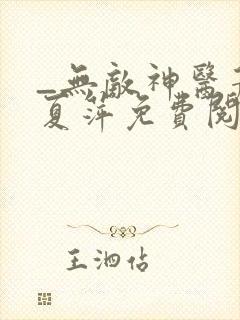 _無敵神醫
夏萍免費閱
王泗佔